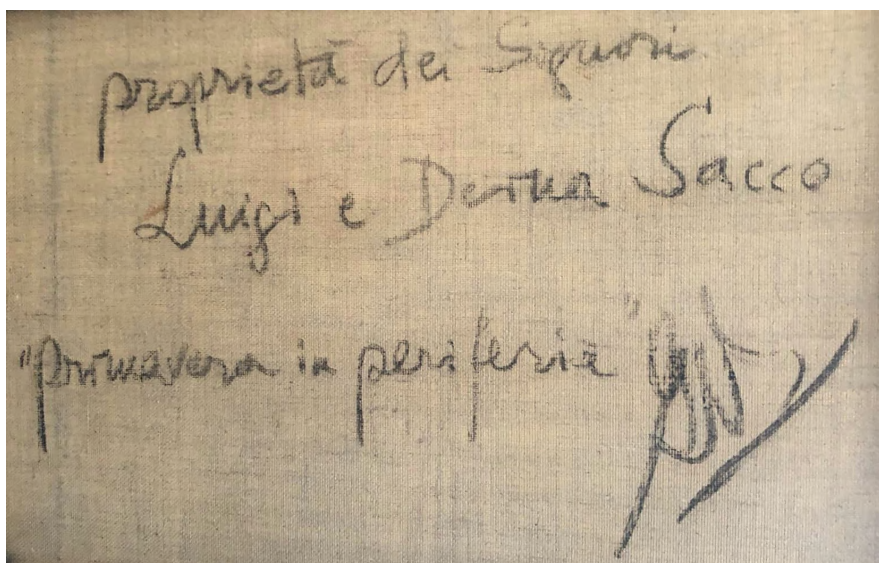 proprietà dei Signori
Luigi e Derna Sacco
"primavera in periferia"